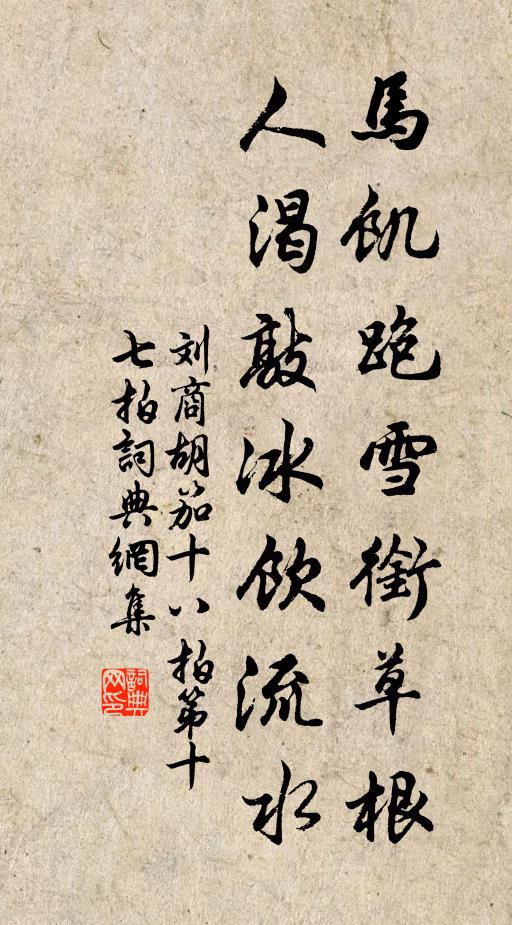 馬飢跑雪銜草根
人渴敲冰飲流水
刘商胡笳十八拍第十
七拍詞典網集
詞典网印